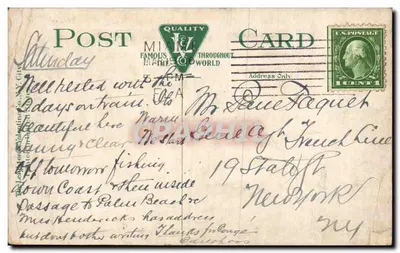 POST CARD
QUALITY
FAMOUS THROUGHOUT
THE WORLD
MI
Address Only
U.S. POSTAGE
1 CENT 1
Saturday
Well rested with the
2 days on train. The
beautiful here
sunny & clear
Off tomorrow fishing
down Coast & then inside
Passage to Palm Beach
Miss Hendericks has address
but dont bother writing
Mr. Paquet
Genl Agt French Line
19 State St
New York
NY